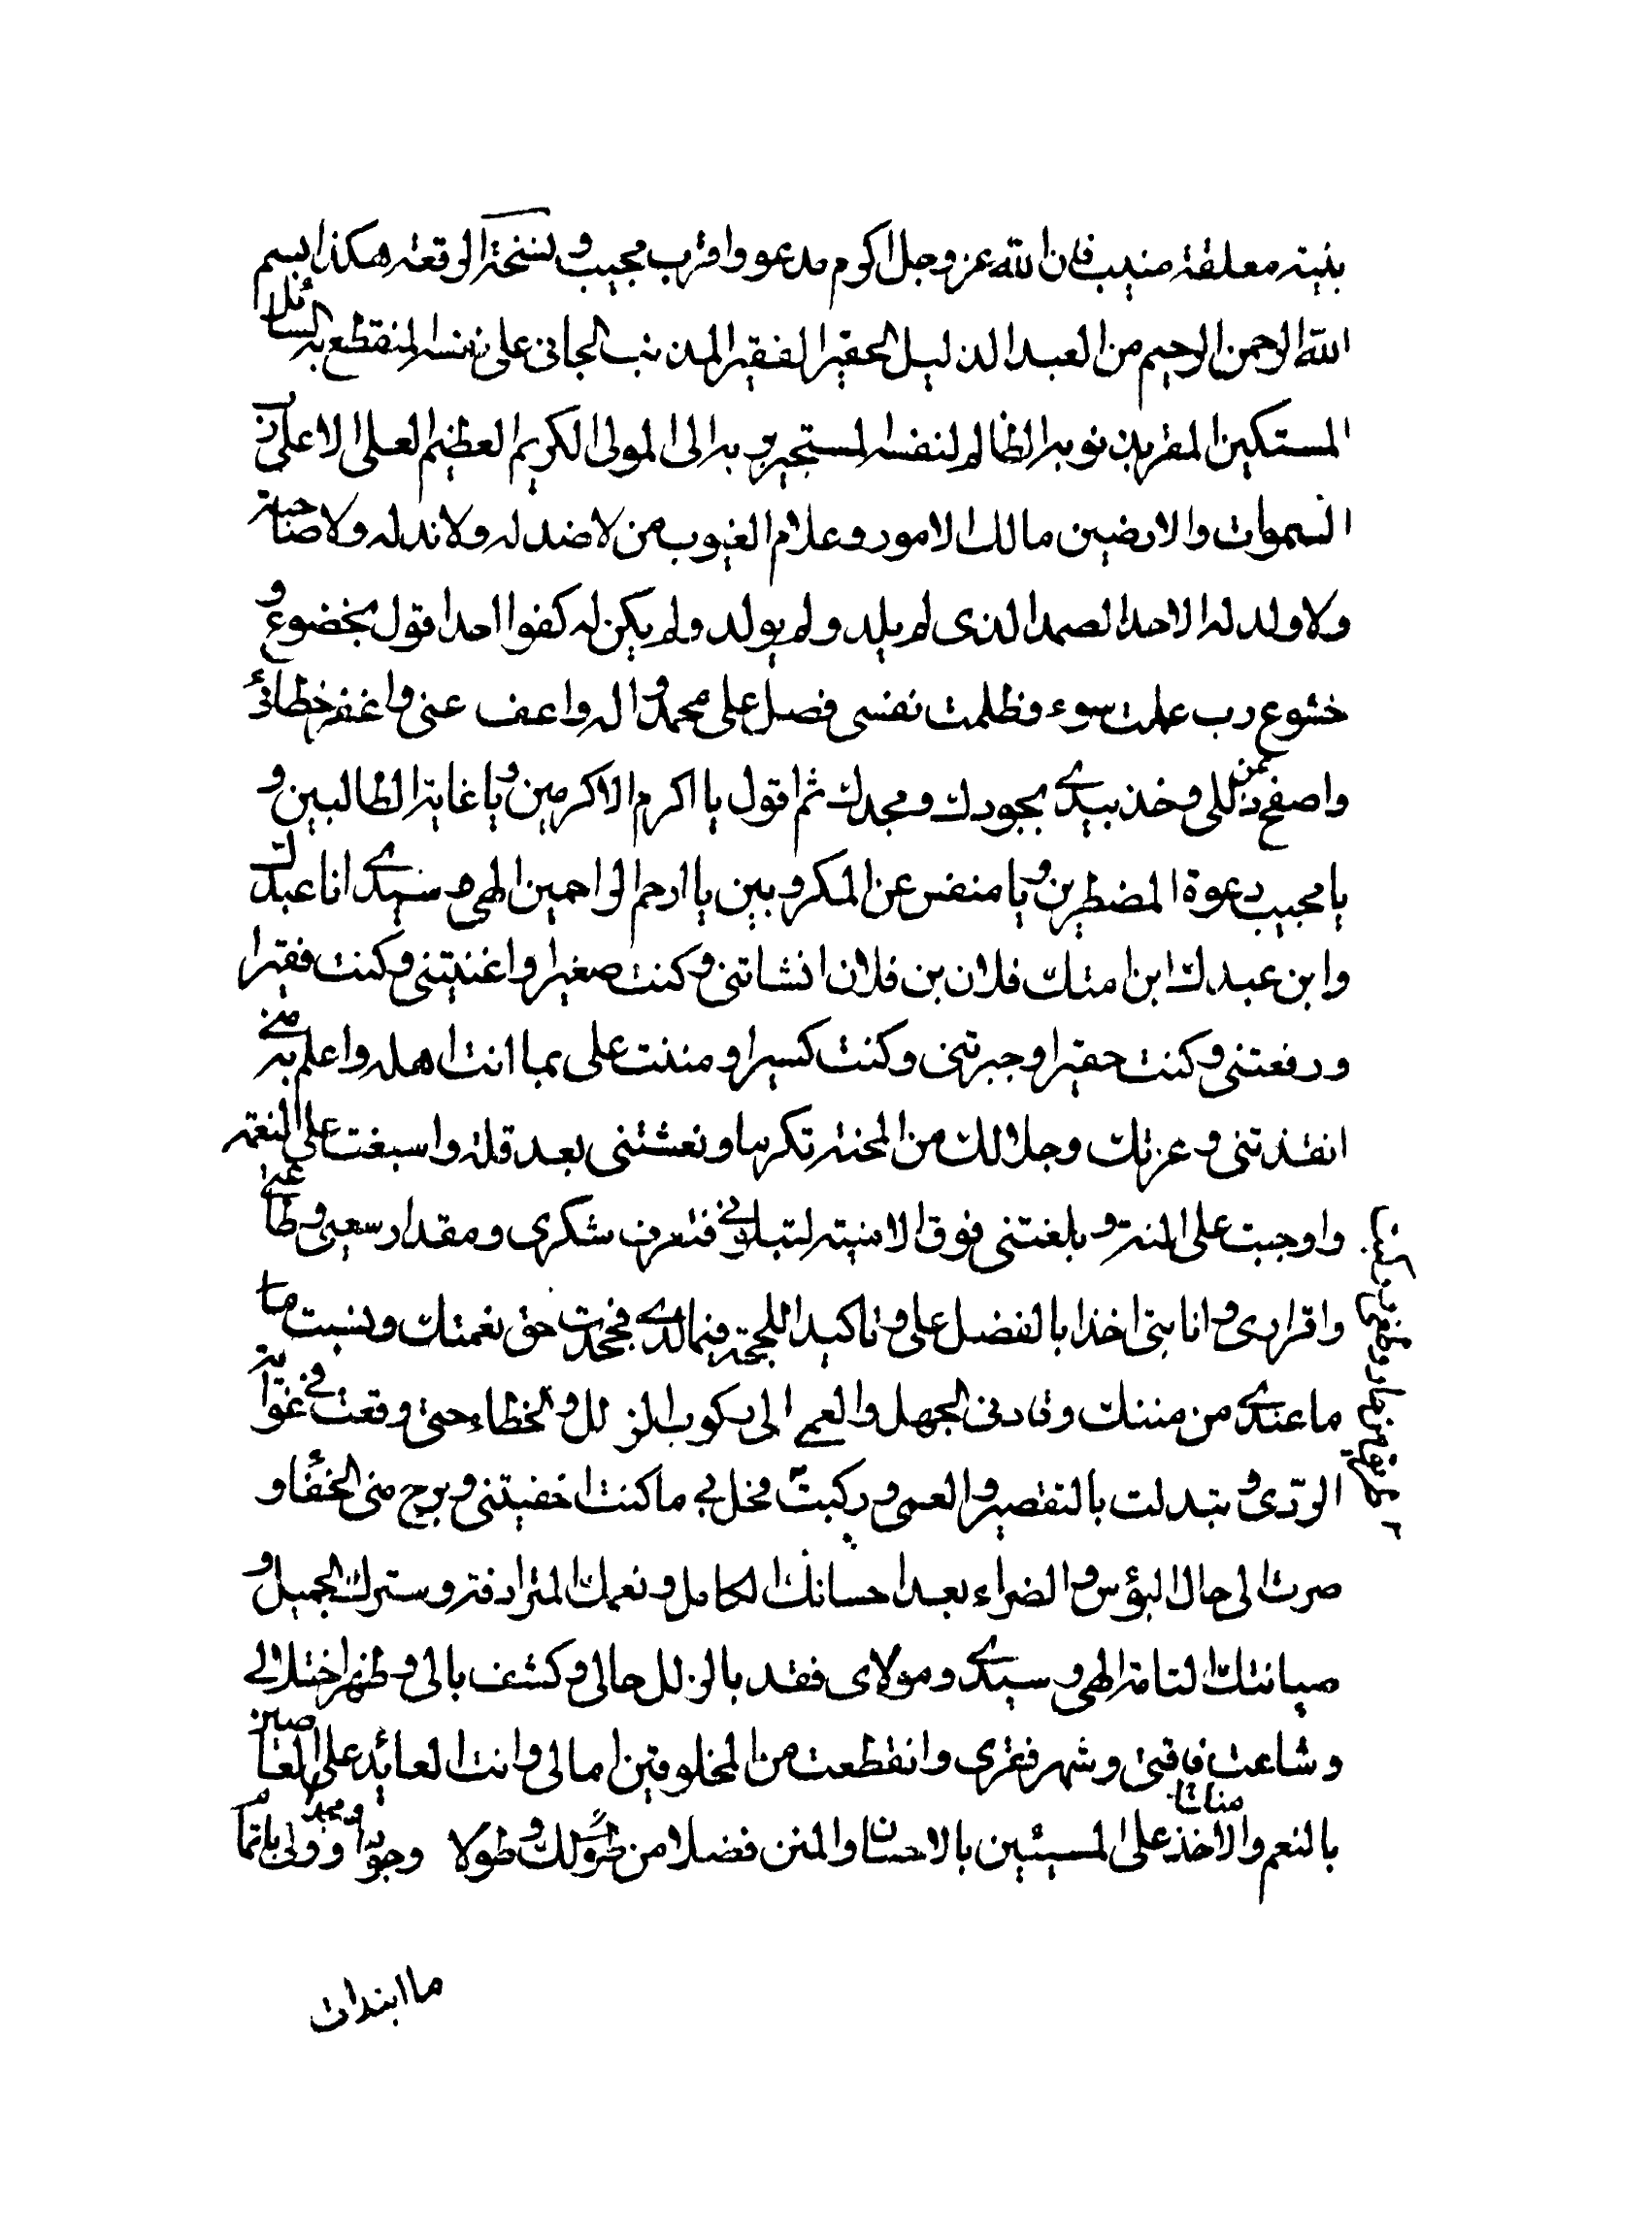 بنیته معلقة منیب فان الله عز وجل اکرم مدعو واقرب مجیب ونسخة الرقعه هکذا بسم
الله الرحمن الرحیم من العبد الذلیل الحقیر الفقیر المذنب الجانی علی نفسه المنقطع به السائل
المستکین المقر بذنوبه الظالم لنفسه المستجیر بربه الی المولی الکریم العظیم العلی الاعلی رب
السموات والارضین مالک الامور وعلام الغیوب من لا ضد له ولا ند له ولا صاحبة
ولا ولد له الاحد الصمد الذی لم یلد ولم یولد ولم یکن له کفوا احد اقول بخضوع و
خشوع رب عملت سوء وظلمت نفسی فصل علی محمد واله واعف عنی واغفر خطائی
واصفح عن زللی وخذ بیدی بجودک ومجدک ثم اقول یا اکرم الاکرمین ویا غایة الطالبین و
یا مجیب دعوة المضطرین ویا منفس عن المکروبین یا ارحم الراحمین الهی وسیدی انا عبدک
وابن عبدک ابن امتک فلان بن فلان انشاتنی وکنت صغیرا واغنیتنی وکنت فقیرا
ورفعتنی وکنت حقیرا وجبرتنی وکنت کسیرا ومننت علی بما انت اهله واعلم به منی
انقذتنی وعزتک وجلالک من المحنه تکرما ونعشتنی بعد قلة واسبغت علی النعمه
واوجبت علی المنة وبلغتنی فوق الامنیة لتبلونی فتعرف شکری ومقدار سعیی وطاعتی
واقراری وانابتی اخذا بالفضل علی وتاکیدا للحجة فیما لدی فجحدت حق نعمتک ونسیت
ما عندی من مننک وقادنی الجهل والعمی الی رکوب الزلل والخطاء حتی وقعت فی غوایة
الردی وتبدلت بالتقصیر والعمی ورکبت فحل بی ما کنت اخفیتنی وبرح منی الخفاء و
صرت الی حال البؤس والضراء بعد احسانک الکامل ونعمک المترادفة وسترک الجمیل و
صیانتک التامة الهی وسیدی ومولای فقد بالزلل حالی وکشف بالی وظهر اختلالی
وشاعت فاقتی وشهر فقری وانقطعت من المخلوقین امالی وانت العائد علی العاصین
بالنعم والاخذ علی المسیئین بالاحسان والمنن فضلا من طولک وطولا وجودا ومجدا
ما ابتدات